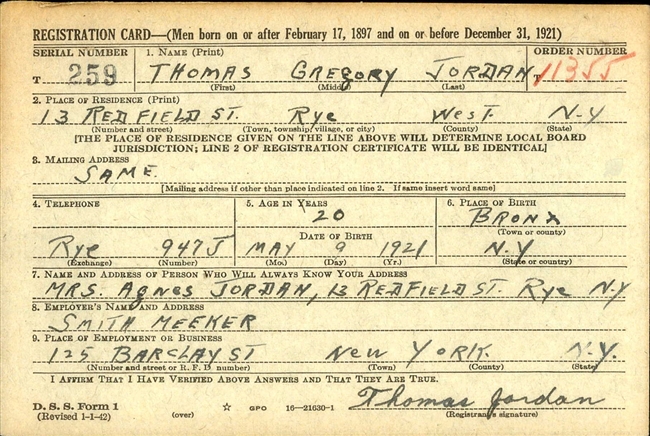 REGISTRATION CARD—(Men born on or after February 17, 1897 and on or before December 31, 1921)
SERIAL NUMBER 1. NAME (Print) ORDER NUMBER
T 259 THOMAS GREGORY JORDAN T 11355
(First) (Middle) (Last)
2. PLACE OF RESIDENCE (Print)
13 REDFIELD ST. Rye WesT. N-Y
(Number and street) (Town, township, village, or city) (County) (State)
[THE PLACE OF RESIDENCE GIVEN ON THE LINE ABOVE WILL DETERMINE LOCAL BOARD
JURISDICTION; LINE 2 OF REGISTRATION CERTIFICATE WILL BE IDENTICAL]
3. MAILING ADDRESS
SAME.
[Mailing address if other than place indicated on line 2. If same insert word same]
4. TELEPHONE 5. AGE IN YEARS 6. PLACE OF BIRTH
20 BRONX
DATE OF BIRTH (Town or county)
Rye 947J MAY 9 1921 N.Y
(Exchange) (Number) (Mo.) (Day) (Yr.) (State or country)
7. NAME AND ADDRESS OF PERSON WHO WILL ALWAYS KNOW YOUR ADDRESS
MRS. Agnes JORDAN, 13 REDFIELD ST. Rye N.Y
8. EMPLOYER'S NAME AND ADDRESS
SMITH MEEKER
9. PLACE OF EMPLOYMENT OR BUSINESS
125 BARCLAY ST New YORK. N.Y.
(Number and street or R. F. D. number) (Town) (County) (State)
I AFFIRM THAT I HAVE VERIFIED ABOVE ANSWERS AND THAT THEY ARE TRUE.
D. S. S. Form 1 Thomas Jordan
(Revised 1-1-42) (over) ☆ GPO 16—21630-1 (Registrant's signature)